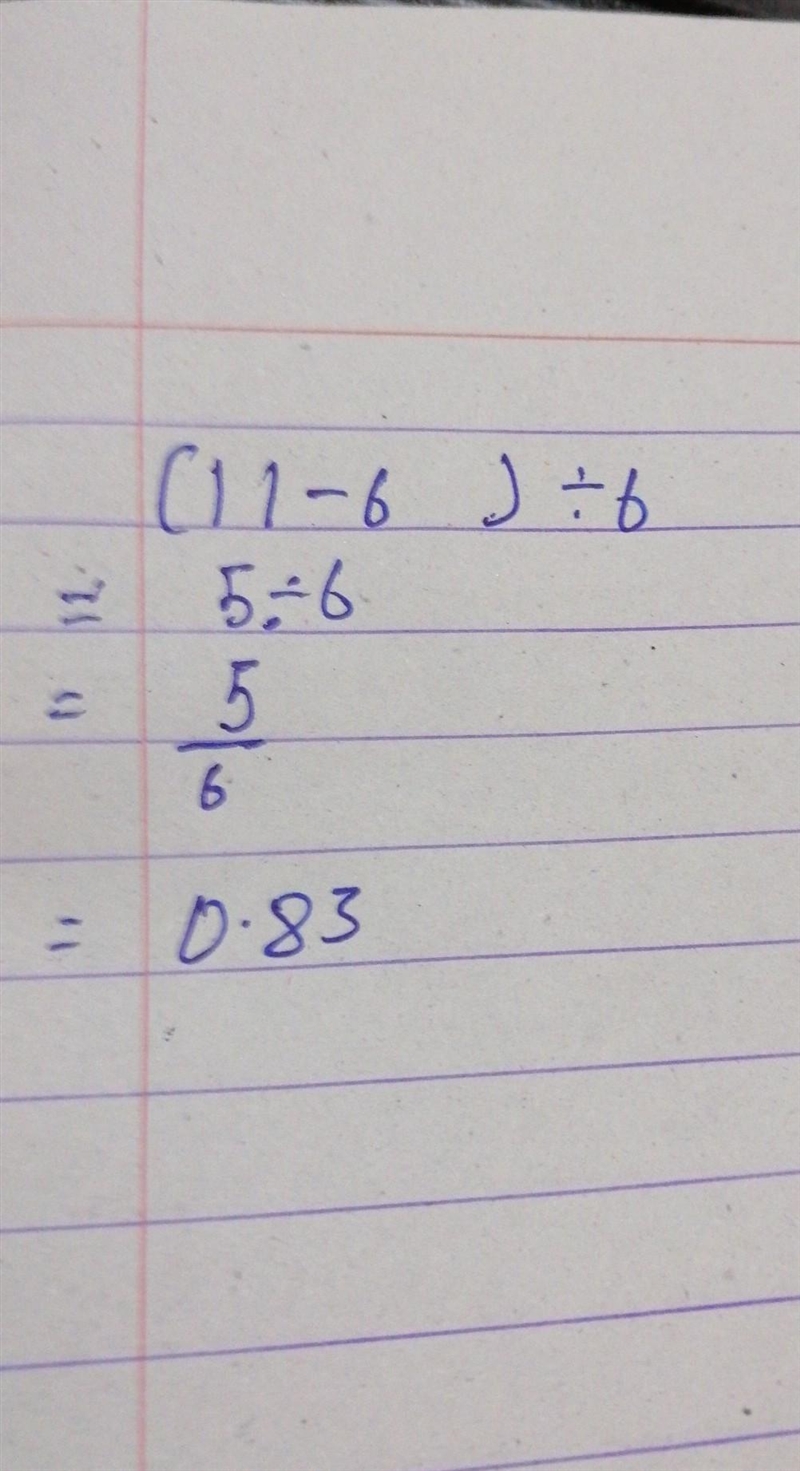 (11-6 ) ÷6
= 5÷6
= 5/6
= 0.83